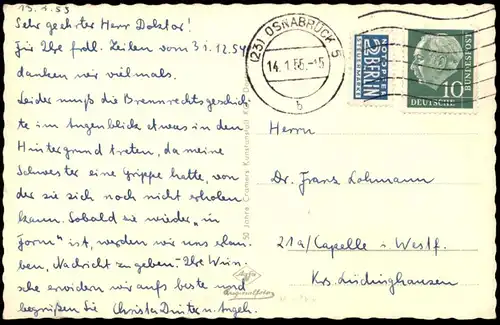 13.1.55
Sehr geehrter Herr Doktor!
Für Ihre frdl. Zeilen vom 31.12.54
danken wir vielmals.
Leider muß die Brennrechtsgeschich-
te im Augenblick etwas in den
Hintergrund treten, da meine
Schwester eine Grippe hatte, von
der sie sich noch nicht erholen
kann. Sobald sie wieder „in
Form" ist, werden wir uns erlau-
ben, Nachricht zu geben. Ihre Wün-
sche erwidern wir aufs beste und
begrüßen Sie Christa u. Angeh.
50 Jahre Cramers Kunstanstalt
Agfa
Originalfoto
(23) OSNABRÜCK 5
14.1.55.-15
b
NOTOPFER
2 BERLIN
STEUERMARKE
DEUTSCHE BUNDESPOST
10
Herrn
Dr. Franz Lohmann
21a/Capelle i. Westf.
Krs. Lüdinghausen